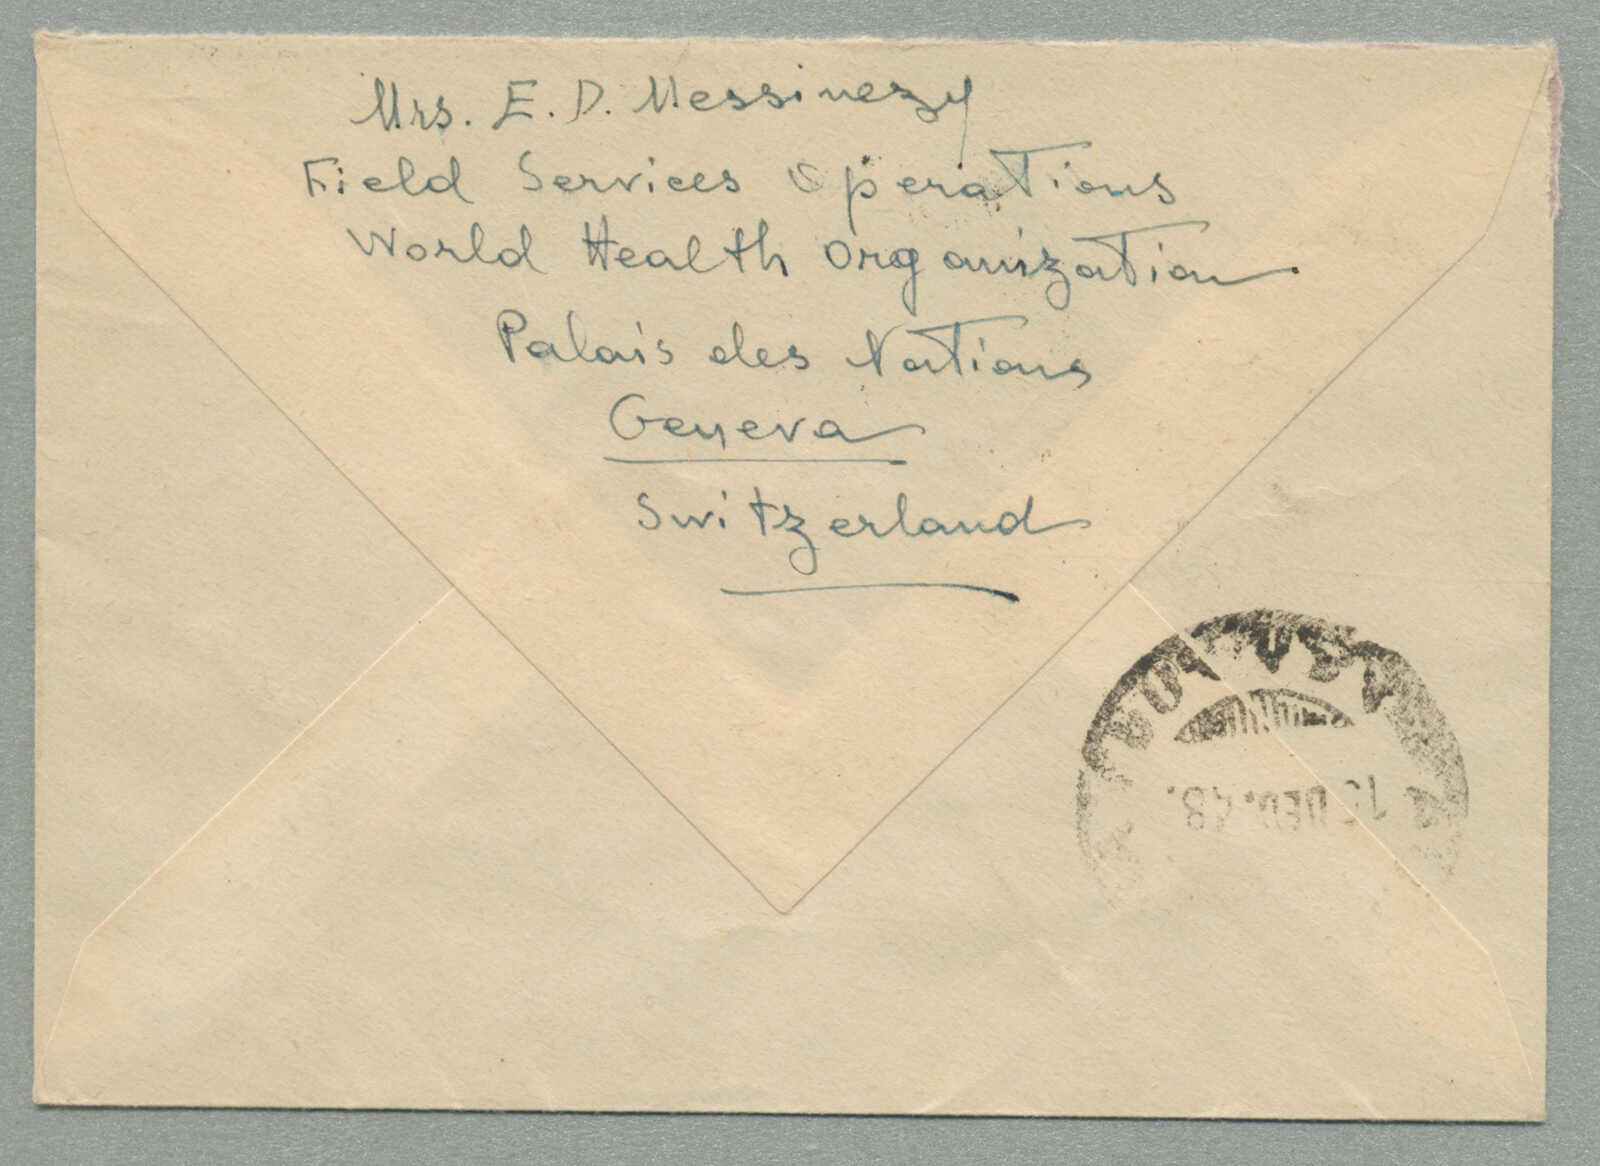 Mrs. E. D. Messinezy
Field Services Operations
World Health Organization
Palais des Nations
Geneva
Switzerland
DEC. 48.